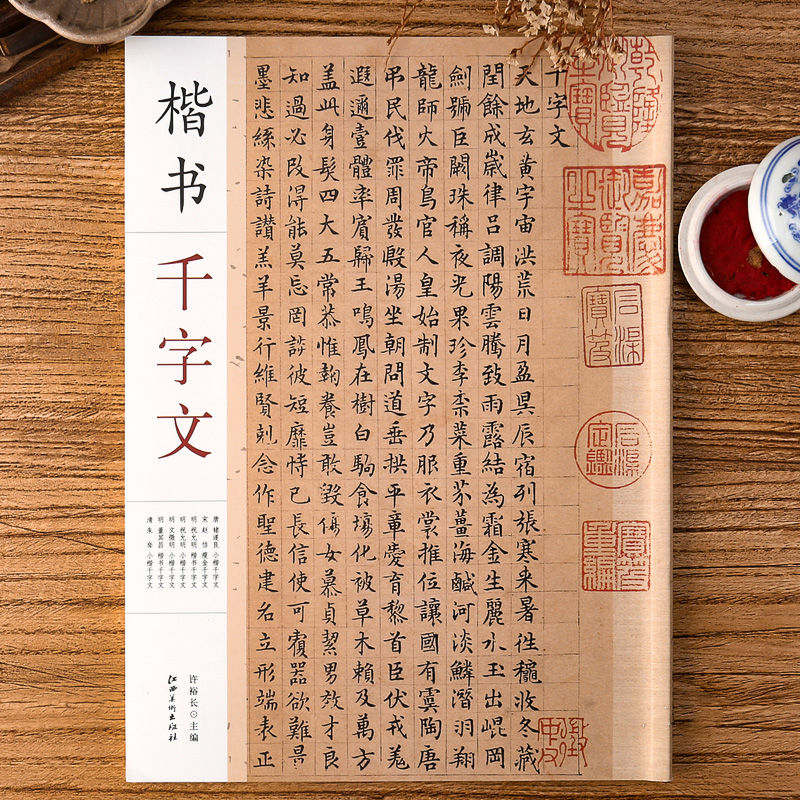 楷书
千字文
唐 褚遂良 小楷千字文
宋 赵 佶 瘦金千字文
明 祝允明 楷书千字文
明 祝允明 小楷千字文
明 文徵明 小楷千字文
明 董其昌 楷书千字文
清 朱 耷 小楷千字文
许裕长⊙主编
江西美术出版社
千字文
天地玄黄宇宙洪荒日月盈昃辰宿列張寒来暑往穐收冬藏
閏餘成歲律吕調陽雲騰致雨露結為霜金生麗水玉出崐岡
劍號巨闕珠稱夜光果珍李柰菜重芥薑海鹹河淡鱗潛羽翔
龍師火帝鳥官人皇始制文字乃服衣裳推位讓國有虞陶唐
弔民伐罪周發殷湯坐朝問道垂拱平章愛育黎首臣伏戎羌
遐邇壹體率賓歸王鳴鳳在樹白駒食場化被草木賴及萬方
盖此身髮四大五常恭惟鞠養豈敢毀傷女慕貞絜男效才良
知過必改得能莫忘罔談彼短靡恃己長信使可覆器欲難量
墨悲絲染詩讚羔羊景行維賢剋念作聖德建名立形端表正
乾隆御覽之寶
嘉慶御覽之寶
石渠寶笈
石渠定鑑
寶笈重編